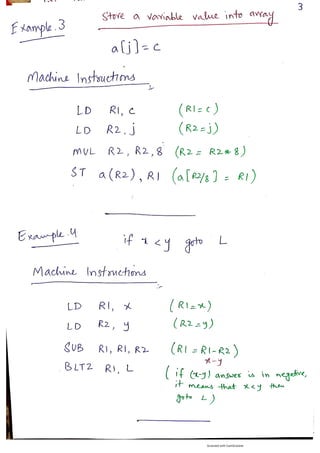 3
Example.3
Store a variable value into array
a[j] = c
Machine Instructions
LD R1, c (R1 = c)
LD R2, j (R2 = j)
MUL R2, R2, 8 (R2 = R2 * 8)
ST a(R2), R1 (a[R2/8] = R1)
Example.4
if x < y goto L
Machine Instructions
LD R1, x (R1 = x)
LD R2, y (R2 = y)
SUB R1, R1, R2 (R1 = R1 - R2)
x-y
BLTZ R1, L (if (x-y) answer is in negative,
it means that x<y then
goto L)
Scanned with CamScanner